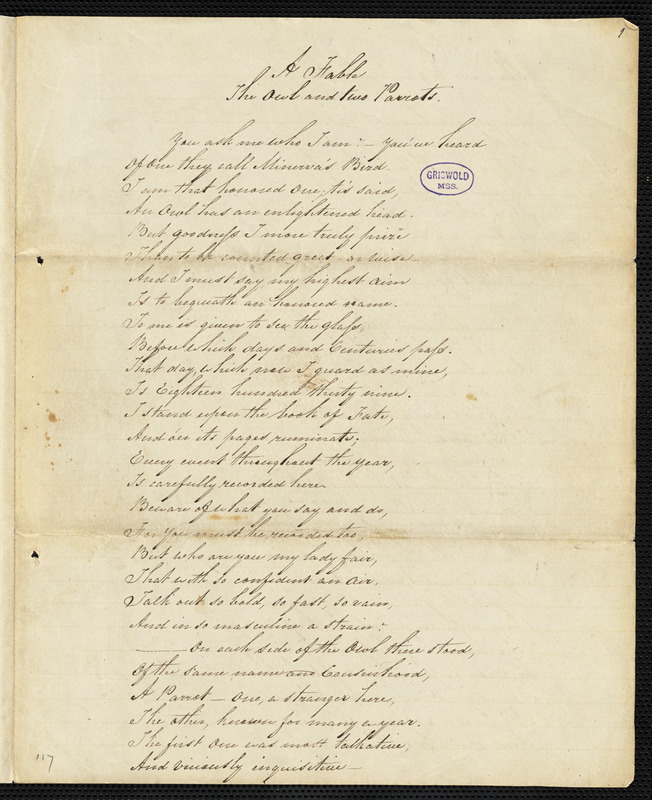 1
A Fable
The Owl and two Parrots.
You ask me who I am?— You've heard
Of One they call Minerva's Bird.
I am that honored One, tis said,
An Owl has an enlightened head.
But goodness I more truly prize
Than to be counted great or wise
And I must say my highest aim
Is to bequeath an honored name.
To me is given to see the glass,
Before which days and Centuries pass.
That day, which now I guard as mine,
Is Eighteen hundred thirty nine.
I stand upon the book of Fate,
And o'er its pages ruminate;
Every event throughout the year,
Is carefully recorded here.
Beware of what you say and do,
For you must be recorded too,
But who are you my lady fair,
That with so confident an air,
Talk out so bold, so fast, so vain,
And in so masculine a strain?
—— On each side of the Owl there stood,
Of the same name and Cousinhood,
A Parrot — One, a stranger here,
The other, known for many a year.
The first One was most talkative,
And viciously inquisitive —
GRISWOLD
MSS.
117